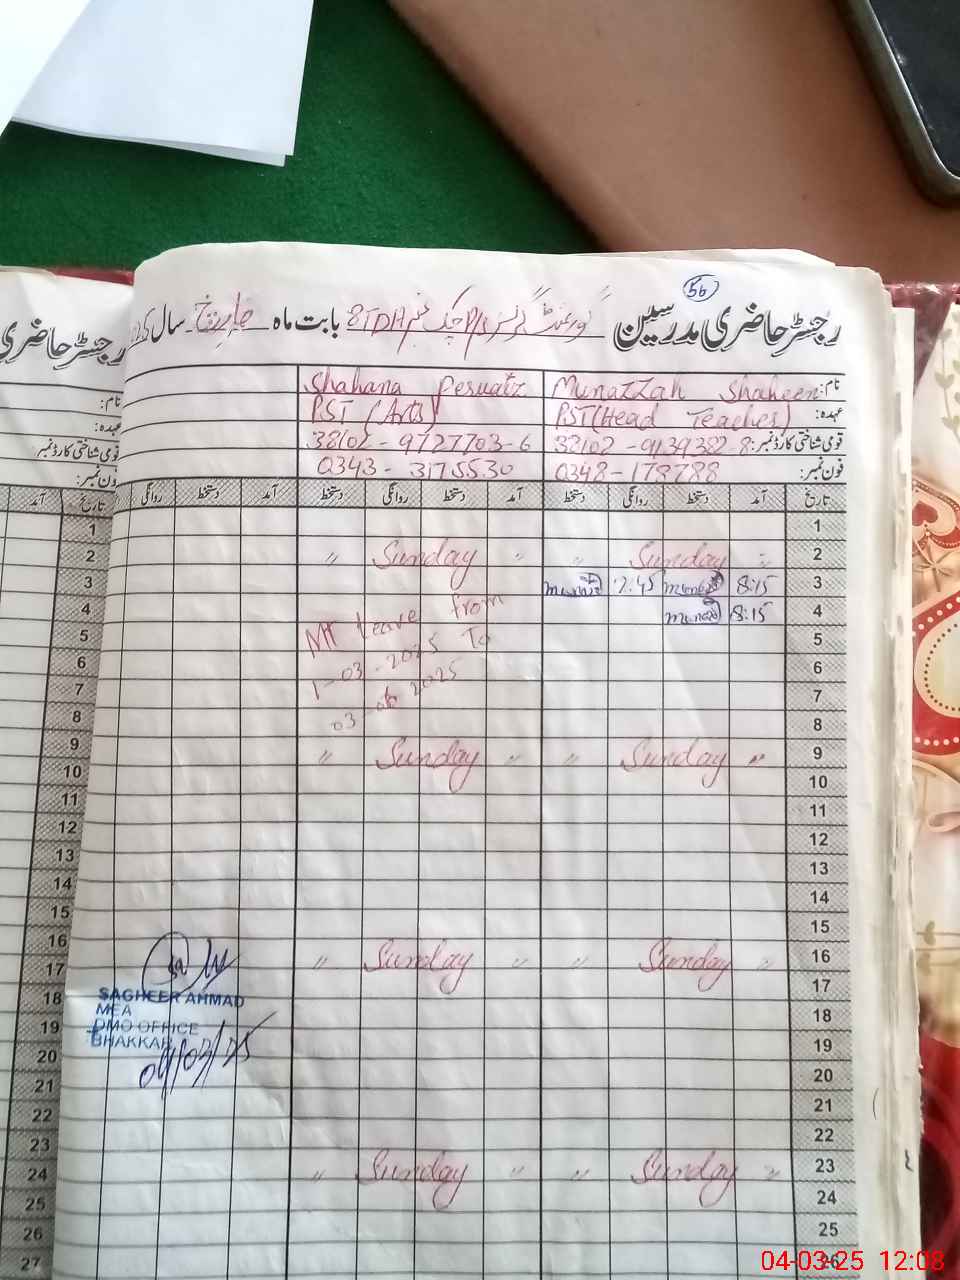 56
رجسٹر حاضری مدرسین گورنمنٹ گرلز چک نمبر 8TDA بابت ماہ مارچ سال
رجسٹر حاضری
نام: Munazzah Shaheen Shahana
عہدہ: PST (Head Teacher) PST (Arts)
قومی شناختی کارڈ نمبر: 38102-9139382-8 38102-9727703-6
فون نمبر: 0348-178788 0343-3175530
نام:
عہدہ:
قومی شناختی کارڈ نمبر
فون نمبر:
تاریخ آمد دستخط روانگی دستخط آمد دستخط روانگی دستخط آمد دستخط روانگی
تاریخ آمد
1
2 〃 Sunday 〃 〃 Sunday 〃
3 8:15 2:45
4 8:15
Mt leave from
5
1-03-2025 To
6
03-06 2025
7
8
9 〃 Sunday 〃 〃 Sunday 〃
10
11
12
13
14
15
16 〃 Sunday 〃 〃 Sunday 〃
17
18
19
20
21
22
23 〃 Sunday 〃 〃 Sunday 〃
24
25
26
1
2
3
4
5
6
7
8
9
10
11
12
13
14
15
16
17
18
19
20
21
22
23
24
25
26
27
SAGHEER AHMAD
MEA
DMO OFFICE
BHAKKAR
04/03/25
04-03-25 12:08